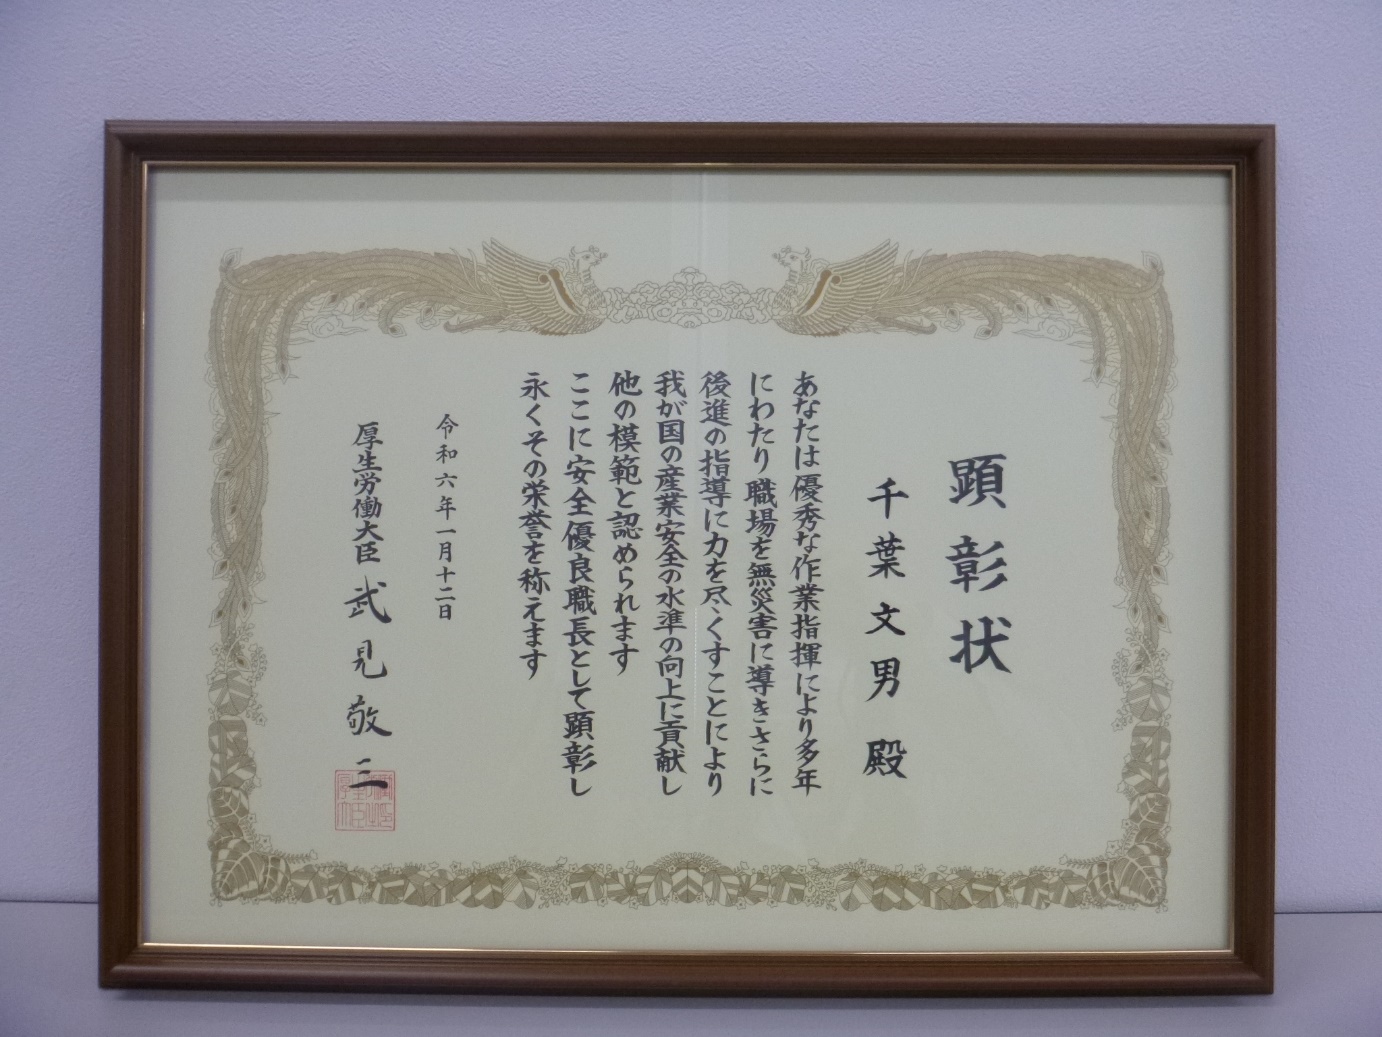 顕彰状
千葉文男殿
あなたは優秀な作業指揮により多年
にわたり職場を無災害に導きさらに
後進の指導に力を尽くすことにより
我が国の産業安全の水準の向上に貢献し
他の模範と認められます
ここに安全優良職長として顕彰し
永くその栄誉を称えます
令和六年一月十二日
厚生労働大臣 武見敬三